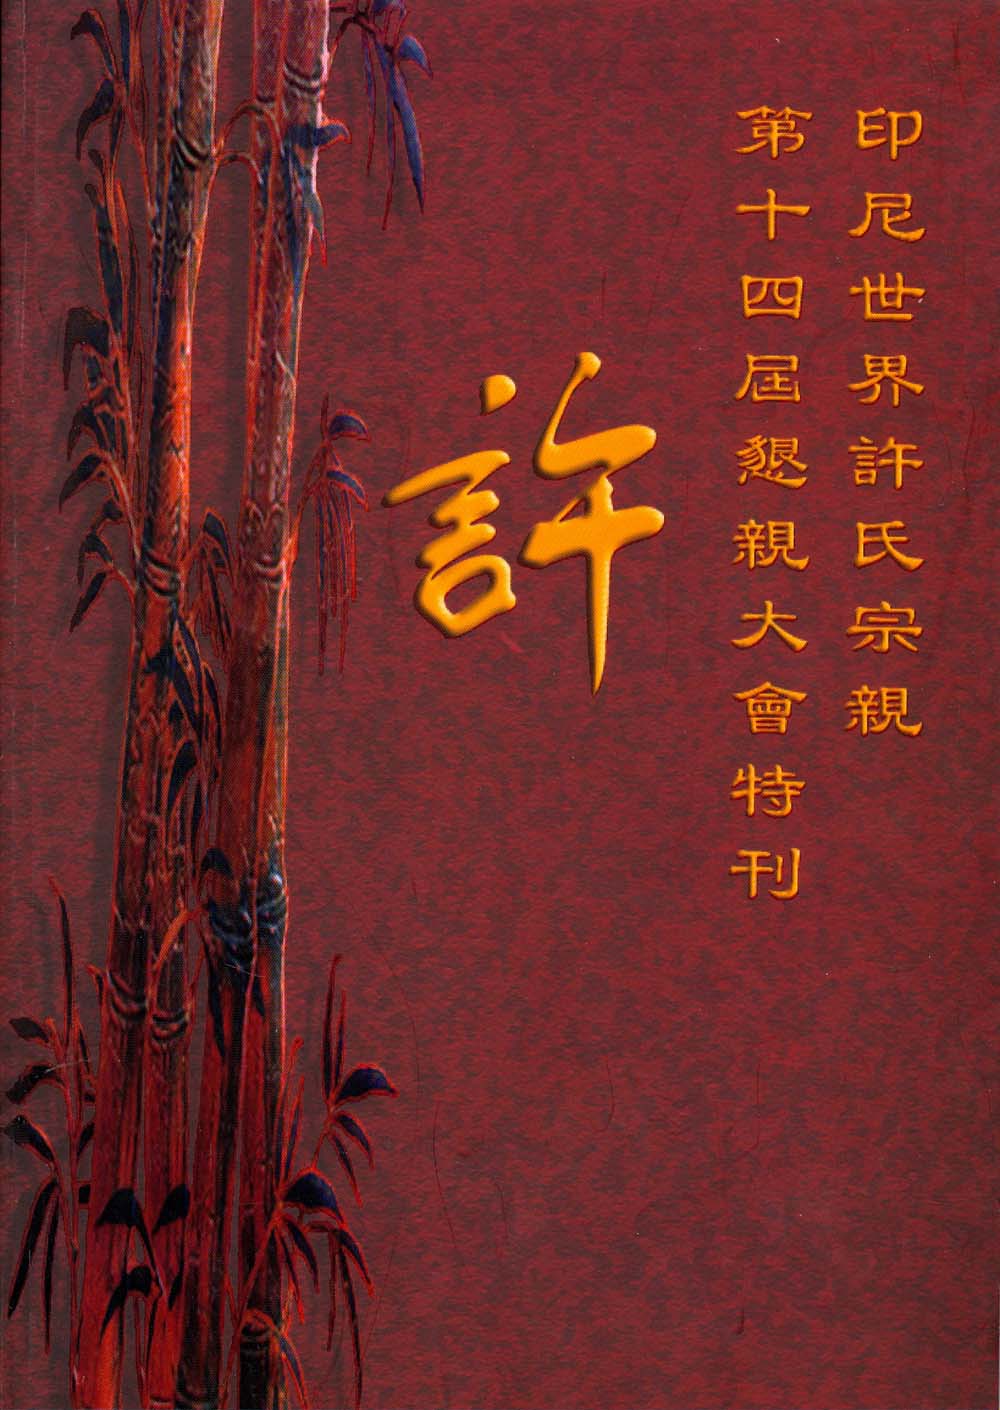 印尼世界許氏宗親
第十四屆懇親大會特刊
許